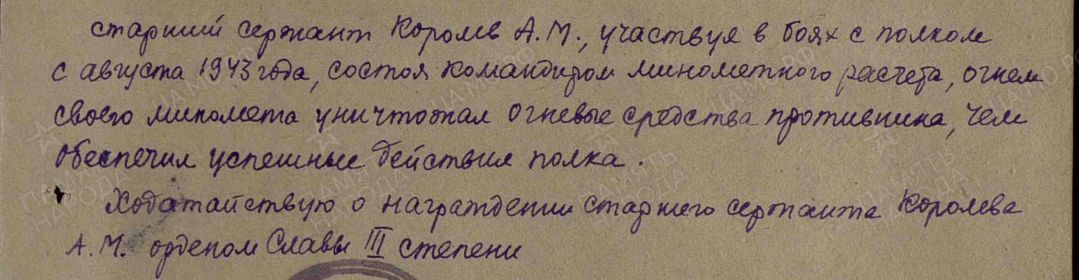 старший сержант Королев А.М., участвуя в боях с полком
с августа 1943 года, состоя командиром минометного расчета, огнем
своего миномета уничтожал огневые средства противника, чем
обеспечил успешные действия полка.
Ходатайствую о награждении старшего сержанта Королева
А.М. орденом Славы III степени